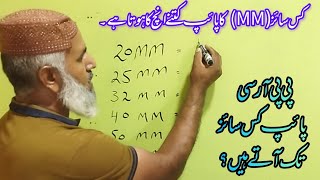 کس سائز (MM) کا پائپ کتنے انچ کا ہوتا ہے۔
20 MM =
25 MM =
32 MM =
40 MM
50 MM
پی پی آر سی
پائپ کس سائز
تک آتے ہیں؟